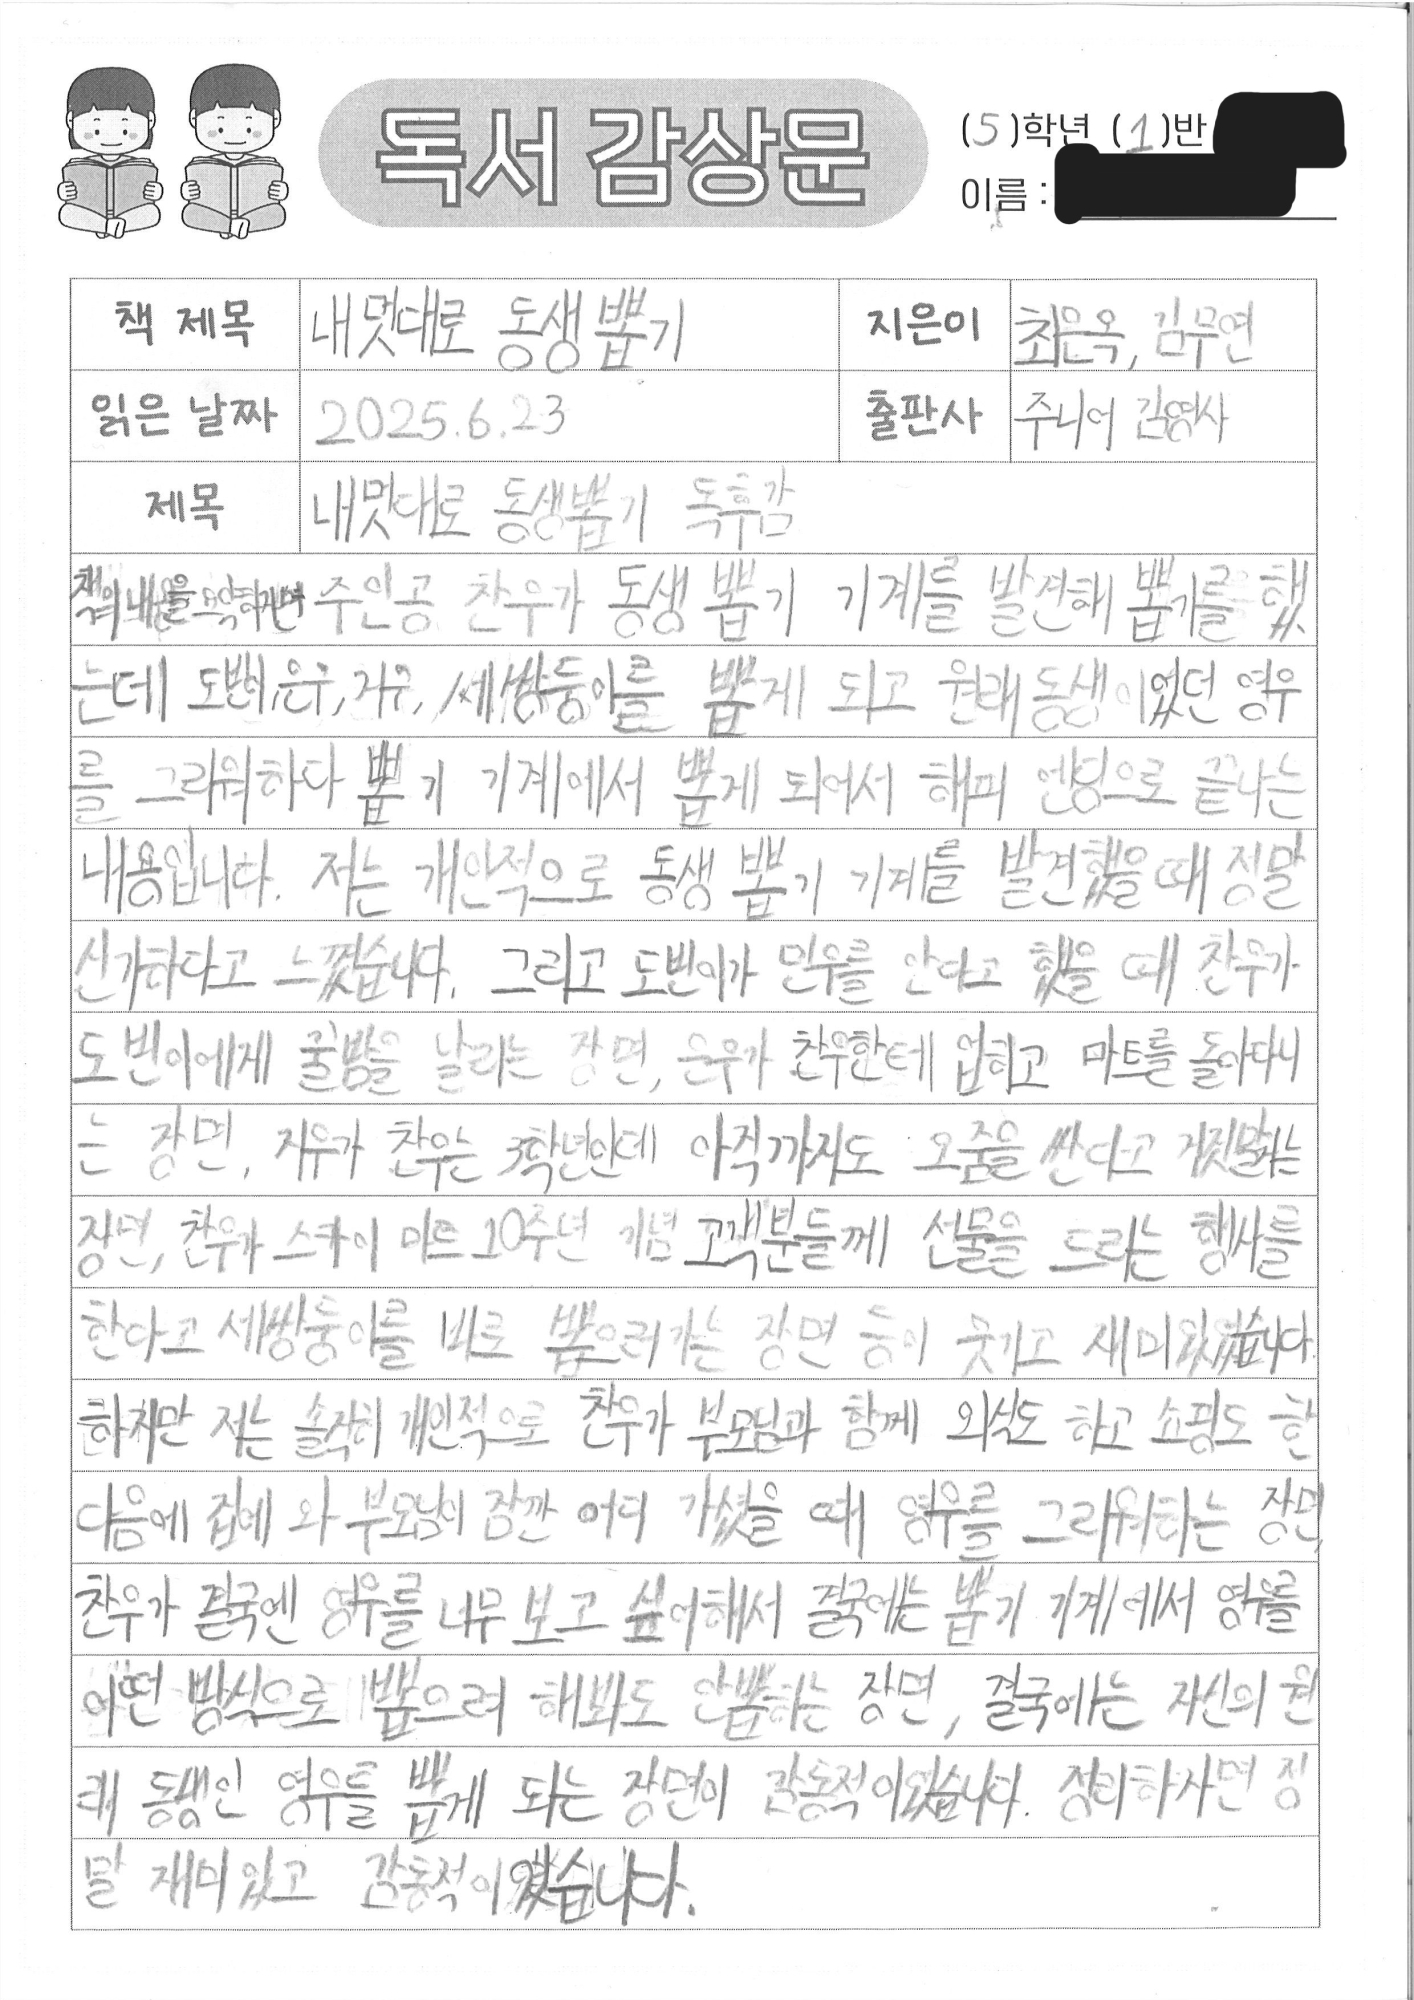 독서 감상문
(5)학년 (1)반
이름 :
책 제목 내멋대로 동생뽑기 지은이 최은옥, 김무연
읽은 날짜 2025.6.23 출판사 주니어 김영사
제목 내멋대로 동생뽑기 독후감
책의 내용을 요약하자면 주인공 찬우가 동생 뽑기 기계를 발견해 뽑기를 했
는데 도빈이, 은우, 세쌍둥이를 뽑게 되고 원래 동생이었던 영우
를 그리워하다 뽑기 기계에서 뽑게 되어서 해피 엔딩으로 끝나는
내용입니다. 저는 개인적으로 동생 뽑기 기계를 발견했을 때 정말
신기하다고 느꼈습니다. 그리고 도빈이가 민우를 안다고 했을 때 찬우가
도빈이에게 꿀밤을 날리는 장면, 은우가 찬우한테 업히고 마트를 돌아다니
는 장면, 지유가 찬우는 3학년인데 아직까지도 오줌을 싼다고 거짓말하는
장면, 찬우가 스카이 마트 10주년 기념 고객분들께 선물을 드리는 행사를
한다고 세쌍둥이를 바로 뽑으러가는 장면 등이 웃기고 재미있었습니다.
하지만 저는 솔직히 개인적으로 찬우가 부모님과 함께 외식도 하고 쇼핑도 한
다음에 집에 와 부모님이 잠깐 어디 가셨을 때 영우를 그리워하는 장면,
찬우가 결국엔 영우를 너무 보고 싶어해서 결국에는 뽑기 기계에서 영우를
어떤 방식으로 뽑으려 해봐도 안뽑히는 장면, 결국에는 자신의 원
래 동생인 영우를 뽑게 되는 장면이 감동적이었습니다. 정리하자면 정
말 재미있고 감동적이었습니다.